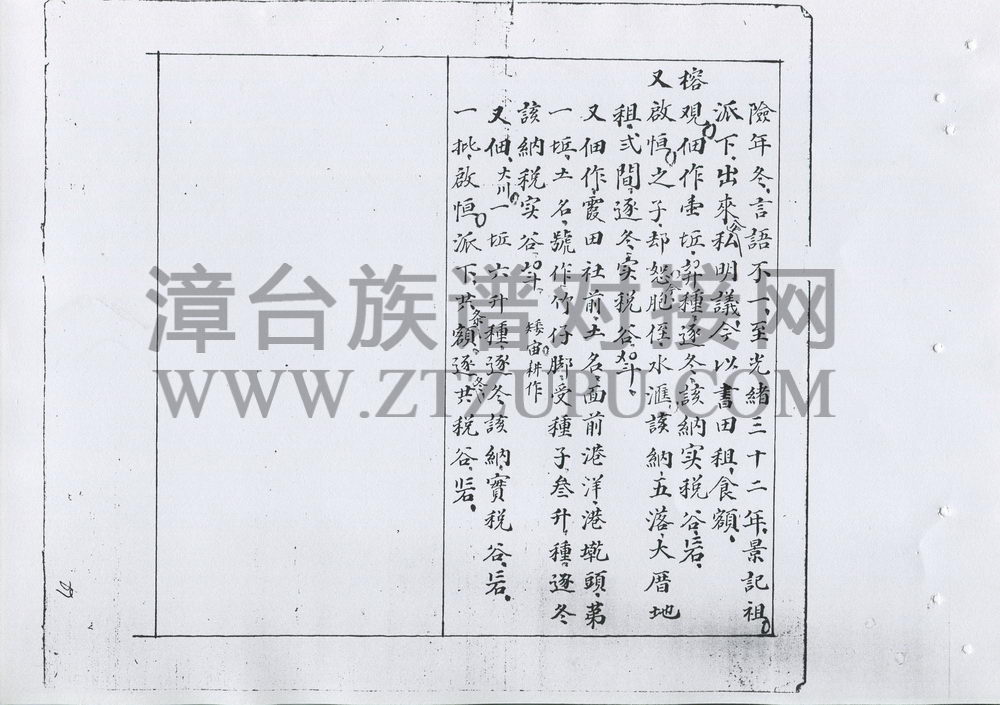 險年冬言語不一至光緒三十二年景記祖
派下出來公私明議今以書田租食額
榕觀佃作壹坵 種逐冬該納实税谷
又啟恒之子却恕胞侄水滙該納五落大厝地
租弍間逐冬实税谷
又佃作霞田社前土名面前港洋港墘頭第
一坵土名號作竹仔脚受種子叁升種逐冬
該納税实谷 矮宙耕作
又佃大川一坵六升種逐冬該納實税谷
一批啟恒派下共条額逐冬共税谷
漳台族谱对接网
WWW.ZTZUPU.COM